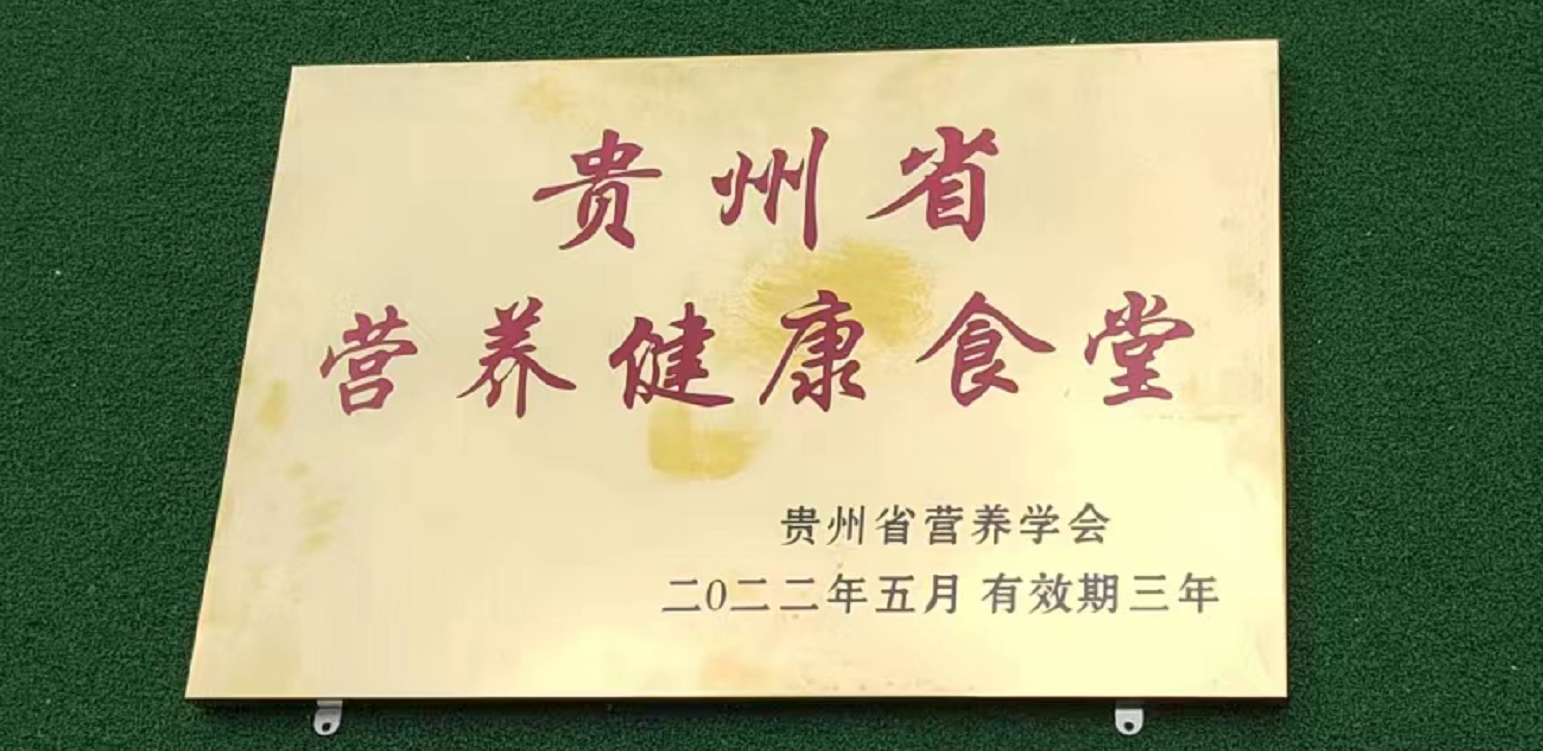 贵州省
营养健康食堂
贵州省营养学会
二0二二年五月 有效期三年